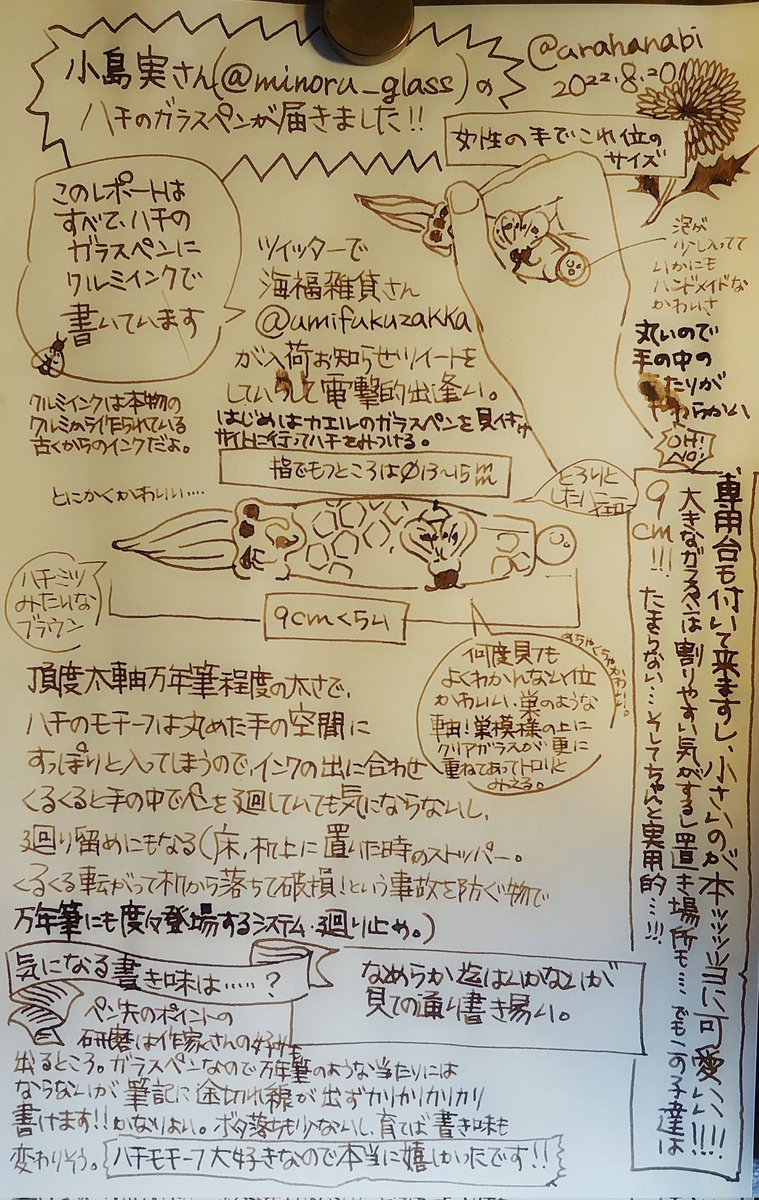 小島実さん(@minoru_glass)の
ハチのガラスペンが届きました!!
@arahanabi
2022.8.20
女性の手でこれ位の
サイズ
このレポートは
すべて、ハチの
ガラスペンに
クルミインクで
書いています
クルミインクは本物の
クルミから作られている
古くからのインクだよ。
ツイッターで
海福雑貨さん
@umifukuzakka
が入荷お知らせツイートを
していらして電撃的出逢い。
はじめはカエルのガラスペンを見付け
サイトに行ってハチをみつける。
泡が
少し入ってて
いかにも
ハンドメイドな
かわいさ
丸いので
手の中の
たりが
やわらかい
OH!
NO!
指でもつところはØ13~15mm
とにかくかわいい....
とろりと
したハニー
ハチミツ
みたいな
ブラウン
9cmくらい
めちゃくちゃかわいい。
何度見ても
よくわかんない位
かわいい、巣のような
車由!巣模様の上に
クリアガラスが、更に
重ねてあってトロリと
みえる。
専用台も付いて来ますし、小さいのが本ッッッ当に可愛いい!!!!
9cm!!!
大きなガラスペンは割りやすい気がするし置き場所も....でもこの子達は
たまらない...そしてちゃんと実用的...!!!
頂度太軸万年筆程度の太さで、
ハチのモチーフは丸めた手の空間に
すっぽりと入ってしまうので、インクの出に合わせ
くるくると手の中でペンを廻していても気にならないし、
廻り留めにもなる(床,机上に置いた時のストッパー。
くるくる転がって机から落ちて破損!という事故を防ぐ物で
万年筆にも度々登場するシステム・廻り止め。)
気になる書き味は.....?
なめらか迄はいかないが
見ての通り書き易い。
ペン先のポイントの
研磨は作家さんの好みも
出るところ。ガラスペンなので万年筆のような当たりには
ならないが筆記に途切れ線が出ずカリカリカリカリ
書けます!!かなりよい。ボタ落ちも少ないし、育てば書き味も
変わりそう。ハチモチーフ大好きなので本当に嬉しかったです!!